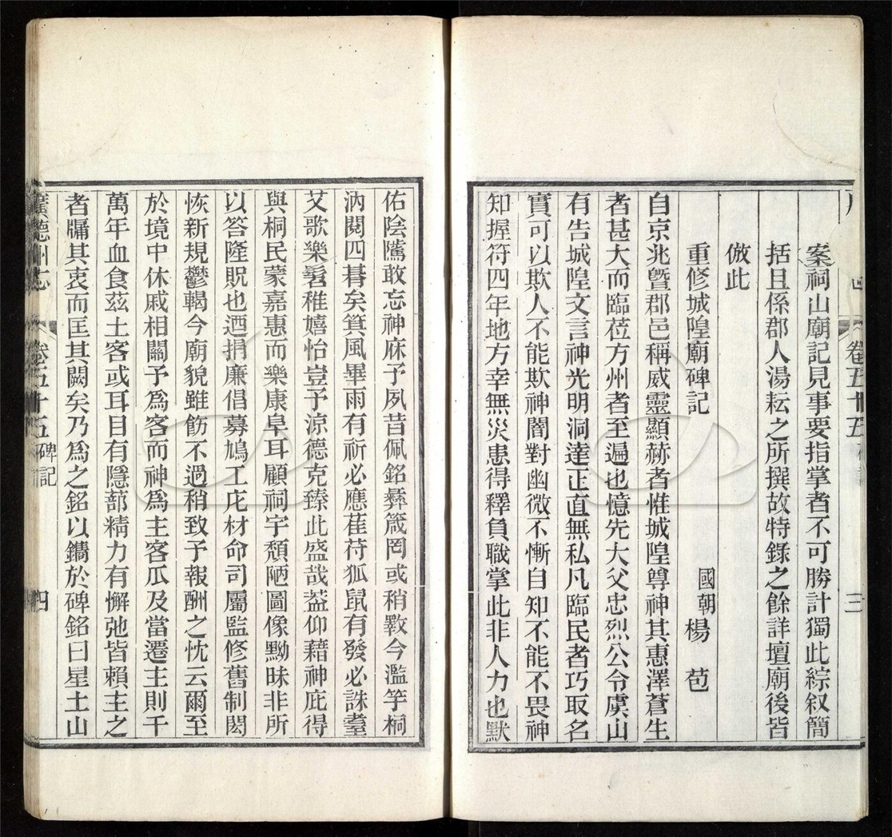 案祠山廟記見事要指掌者不可勝計獨此綜叙簡
括且係郡人湯耘之所撰故特錄之餘詳壇廟後皆
倣此
重修城隍廟碑記
國朝楊苞
自京兆曁郡邑稱威靈顯赫者惟城隍尊神其惠澤蒼生
者甚大而臨莅方州者至遍也憶先大父忠烈公令虞山
有告城隍文言神光明洞達正直無私凡臨民者巧取名
實可以欺人不能欺神闇對幽微不慚自知不能不畏神
知握符四年地方幸無災患得釋負職掌此非人力也默
卷五十五
三
佑陰隲敢忘神庥予夙昔佩銘彝箴罔或稍斁今濫竽桐
汭閱四朞矣箕風畢雨有祈必應萑苻狐鼠有發必誅耋
艾歌樂髫稚嬉怡豈予涼德克臻此盛哉葢仰藉神庇得
與桐民蒙嘉惠而樂康阜耳顧祠宇頹陋圖像黝昧非所
以答隆貺也迺捐廉倡募鳩工庀材命司屬監修舊制閎
恢新規鬱轕今廟貌雖飭不過稍致予報酬之忱云爾至
於境中休戚相關予為客而神為主客瓜及當遷主則千
萬年血食茲土客或耳目有隱蔀精力有懈弛皆賴主之
者牖其衷而匡其闕矣乃為之銘以鐫於碑銘曰星土山
廣德州志
卷五十五碑記
四